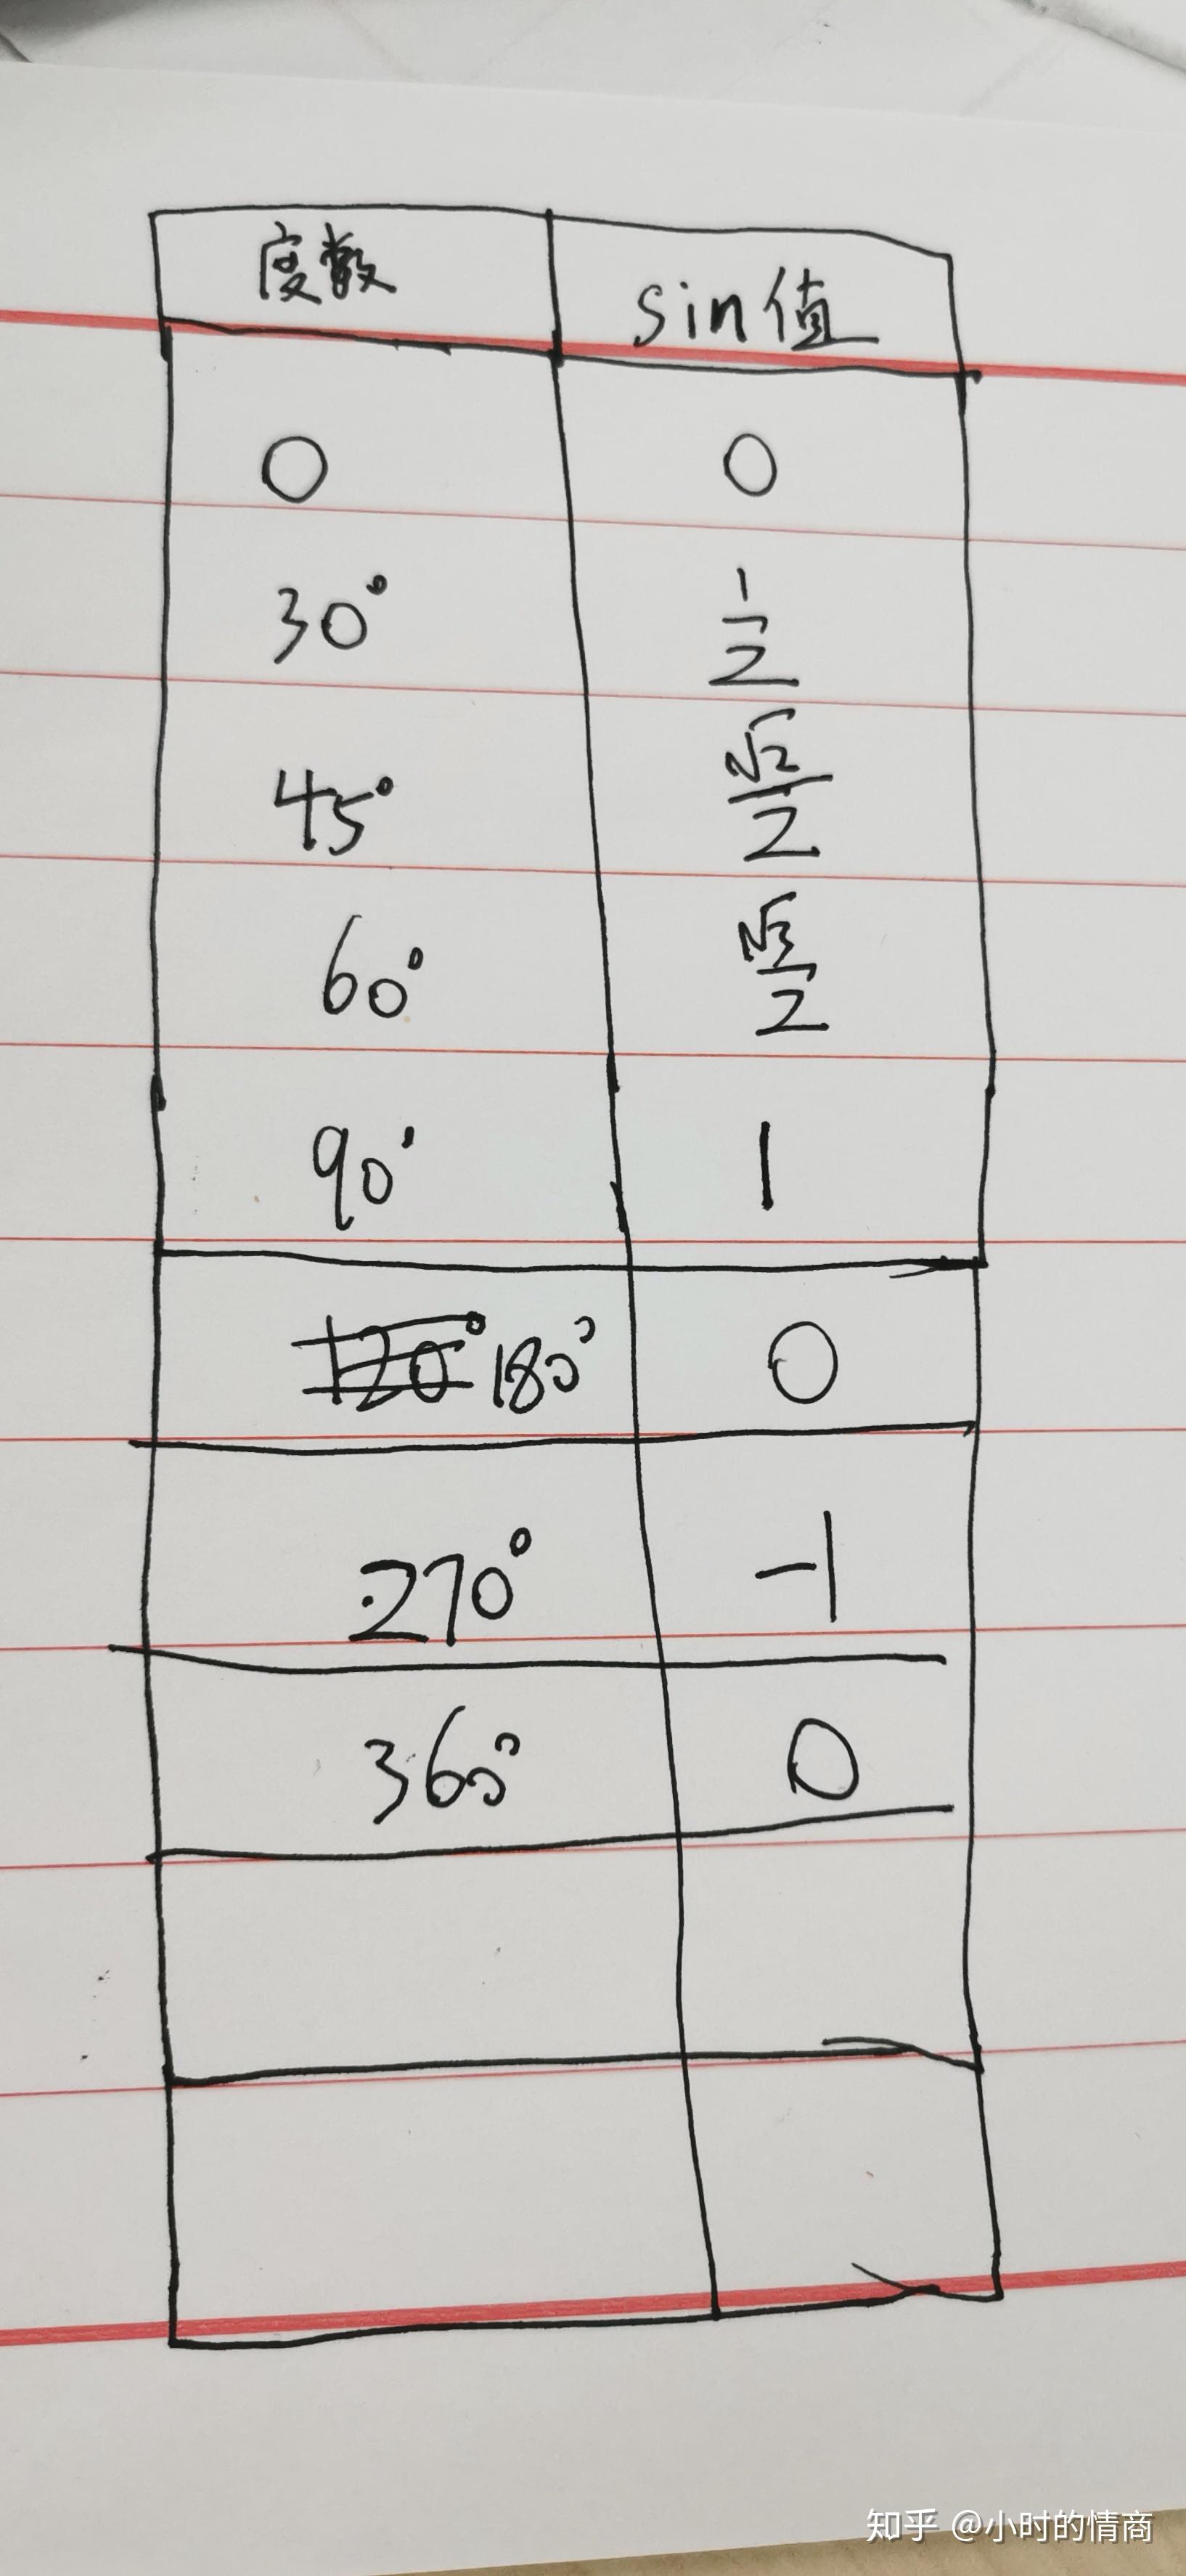 度数 sin值
0 0
30° 1/2
45° √2/2
60° √3/2
90° 1
120° 180° 0
270° -1
360° 0
知乎 @小时的情商